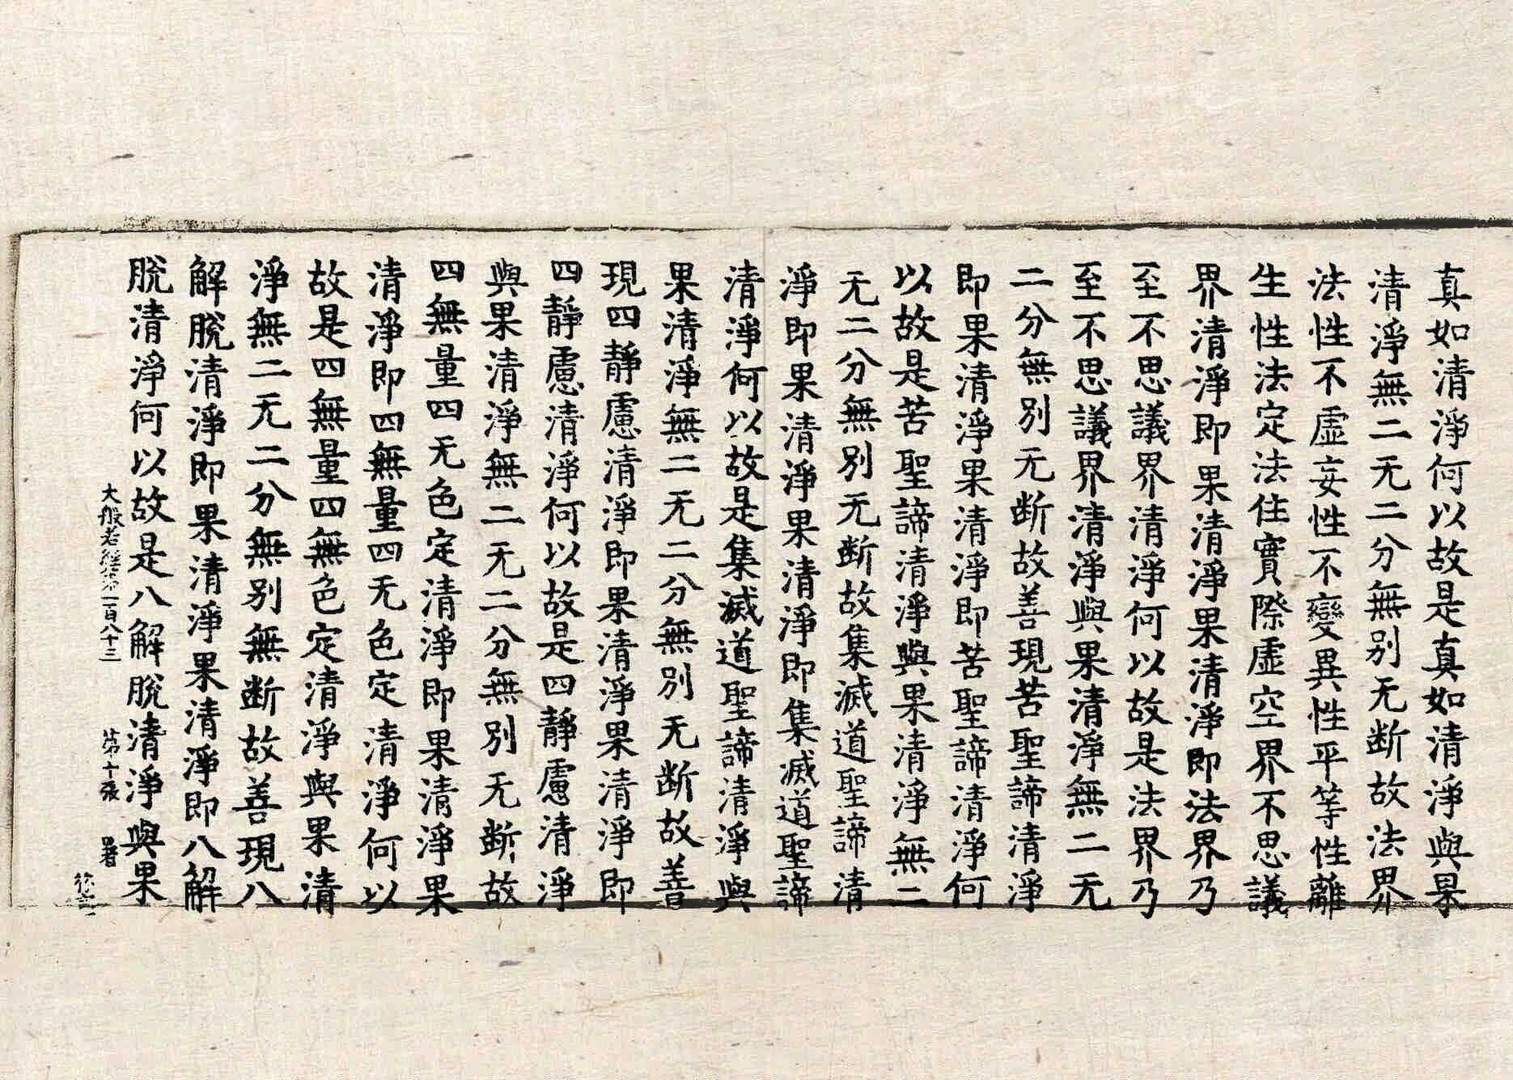 真如清淨何以故是真如清淨與果
清淨無二无二分無别无断故法界
法性不虛妄性不變異性平等性離
生性法定法住實際虛空界不思議
界清淨即果清淨果清淨即法界乃
至不思議界清淨何以故是法界乃
至不思議界清淨與果清淨無二无
二分無别无断故善現苦聖諦清淨
即果清淨果清淨即苦聖諦清淨何
以故是苦聖諦清淨與果清淨無二
无二分無别无断故集滅道聖諦清
淨即果清淨果清淨即集滅道聖諦
清淨何以故是集滅道聖諦清淨與
果清淨無二无二分無别无断故善
現四靜慮清淨即果清淨果清淨即
四靜慮清淨何以故是四靜慮清淨
與果清淨無二无二分無别无断故
四無量四无色定清淨即果清淨果
清淨即四無量四无色定清淨何以
故是四無量四無色定清淨與果清
淨無二无二分無别無断故善現八
解脫清淨即果清淨果清淨即八解
脫清淨何以故是八解脫清淨與果
大般若經第一百八十三 第十張 署